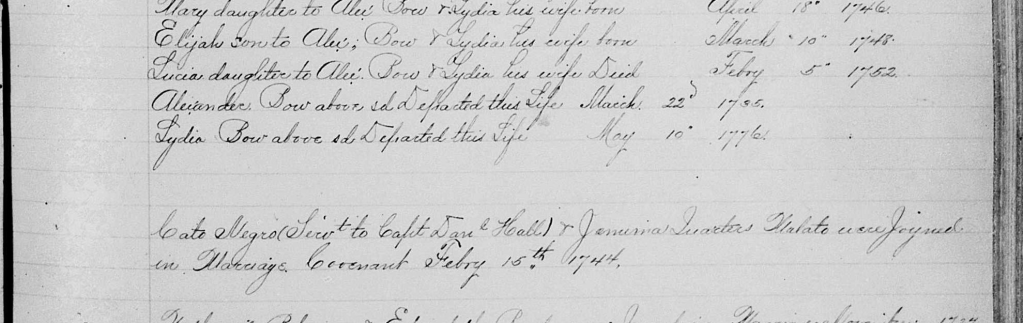 Mary daughter to Alexr Bow & Lydia his wife born April 18" 1746.
Elijah son to Alexr; Bow & Lydia his wife born March "10" 1748.
Lucia daughter to Alexr. Bow & Lydia his wife Died Febry 5" 1752
Alexander Bow above sd Departed this Life March 22d
Lydia Bow above sd Departed this Life May 10" 1776.
Cato Negro (Servt to Capt Danl Hall) & Jemima Quarters Malato were Joyned
in Marriage Covenant Febry 15th 1744.